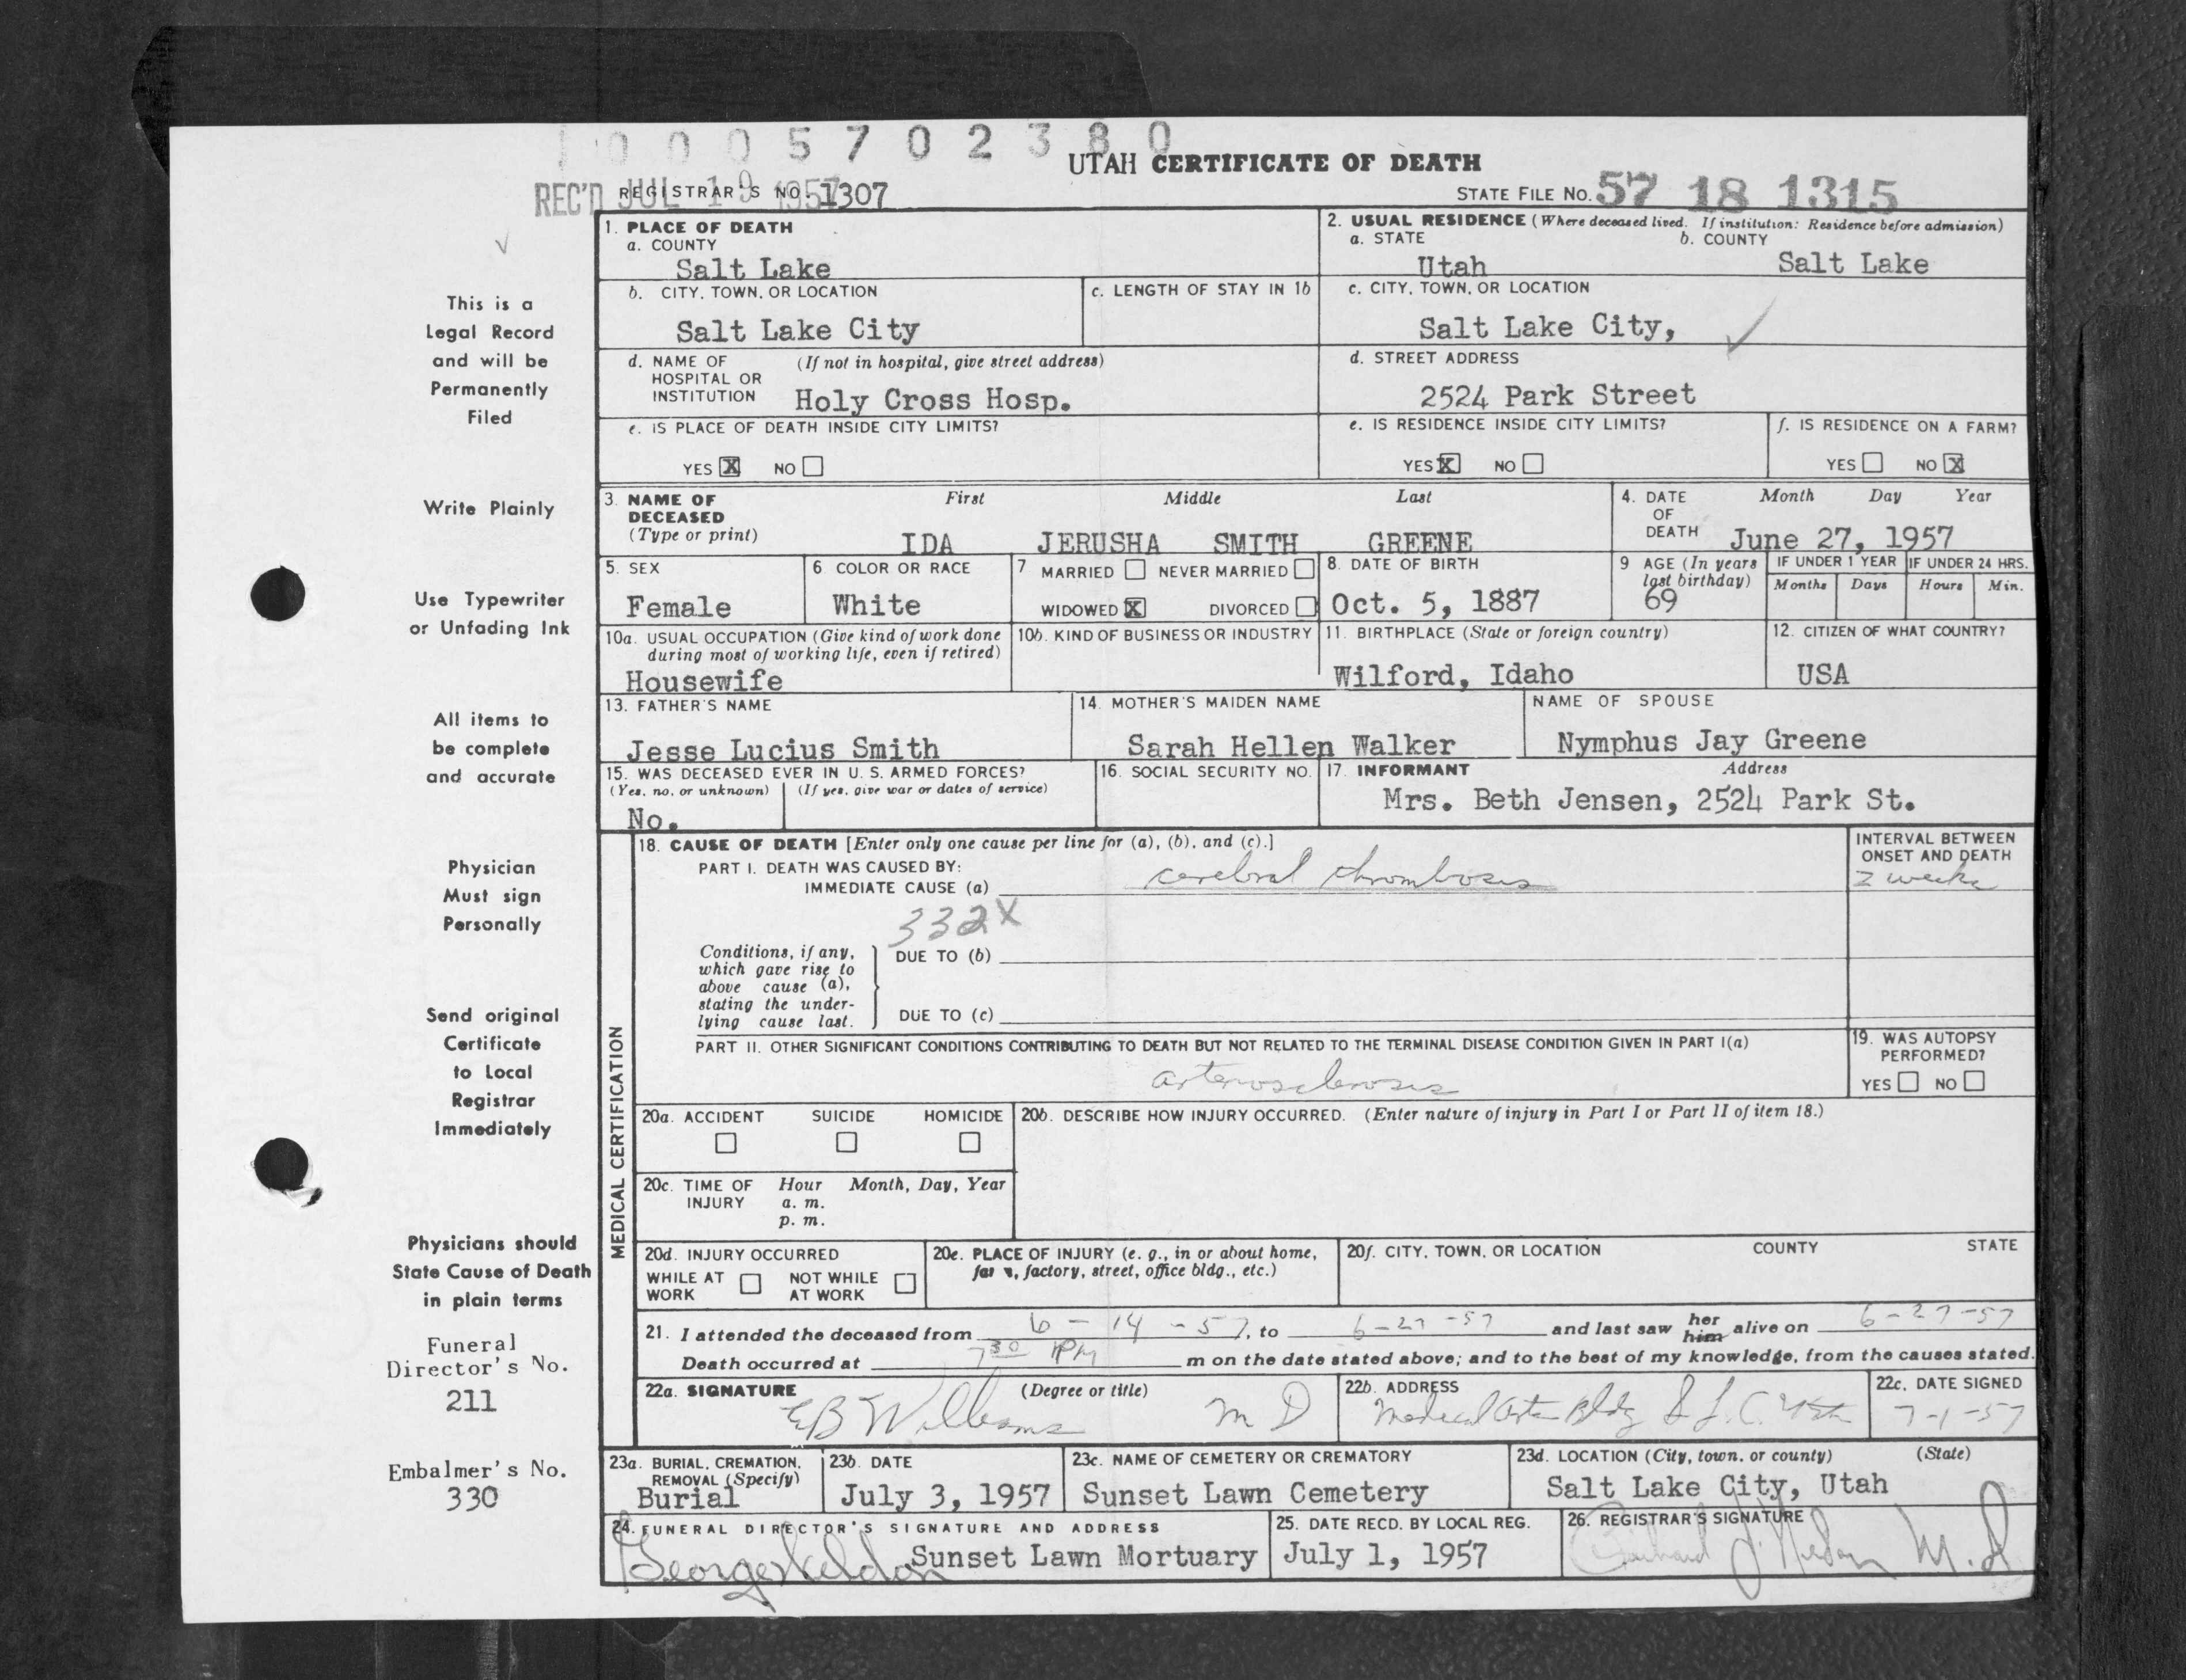 1 0 0 0 5 7 0 2 3 8 0
UTAH CERTIFICATE OF DEATH
REC'D JUL 19 1957
REGISTRAR'S NO. 1307
STATE FILE NO. 57 18 1315
This is a
Legal Record
and will be
Permanently
Filed
Write Plainly
Use Typewriter
or Unfading Ink
All items to
be complete
and accurate
Physician
Must sign
Personally
Send original
Certificate
to Local
Registrar
Immediately
Physicians should
State Cause of Death
in plain terms
Funeral
Director's No.
211
Embalmer's No.
330
1. PLACE OF DEATH
a. COUNTY
Salt Lake
2. USUAL RESIDENCE (Where deceased lived. If institution: Residence before admission)
a. STATE b. COUNTY
Utah Salt Lake
b. CITY, TOWN, OR LOCATION
Salt Lake City
c. LENGTH OF STAY IN 1b
c. CITY, TOWN, OR LOCATION
Salt Lake City,
d. NAME OF (If not in hospital, give street address)
HOSPITAL OR
INSTITUTION Holy Cross Hosp.
d. STREET ADDRESS
2524 Park Street
e. IS PLACE OF DEATH INSIDE CITY LIMITS?
YES X NO
e. IS RESIDENCE INSIDE CITY LIMITS?
YES X NO
f. IS RESIDENCE ON A FARM?
YES NO X
3. NAME OF First Middle Last
DECEASED
(Type or print)
IDA JERUSHA SMITH GREENE
4. DATE Month Day Year
OF
DEATH June 27, 1957
5. SEX
Female
6 COLOR OR RACE
White
7 MARRIED NEVER MARRIED
WIDOWED X DIVORCED
8. DATE OF BIRTH
Oct. 5, 1887
9 AGE (In years
last birthday)
69
IF UNDER 1 YEAR
Months Days
IF UNDER 24 HRS.
Hours Min.
10a. USUAL OCCUPATION (Give kind of work done
during most of working life, even if retired)
Housewife
10b. KIND OF BUSINESS OR INDUSTRY
11. BIRTHPLACE (State or foreign country)
Wilford, Idaho
12. CITIZEN OF WHAT COUNTRY?
USA
13. FATHER'S NAME
Jesse Lucius Smith
14. MOTHER'S MAIDEN NAME
Sarah Hellen Walker
NAME OF SPOUSE
Nymphus Jay Greene
15. WAS DECEASED EVER IN U. S. ARMED FORCES?
(Yes, no, or unknown) (If yes, give war or dates of service)
No.
16. SOCIAL SECURITY NO.
17. INFORMANT Address
Mrs. Beth Jensen, 2524 Park St.
MEDICAL CERTIFICATION
18. CAUSE OF DEATH [Enter only one cause per line for (a), (b), and (c).]
PART I. DEATH WAS CAUSED BY:
IMMEDIATE CAUSE (a) cerebral thrombosis
INTERVAL BETWEEN
ONSET AND DEATH
2 weeks
332X
Conditions, if any,
which gave rise to
above cause (a),
stating the under-
lying cause last.
DUE TO (b)
DUE TO (c)
PART II. OTHER SIGNIFICANT CONDITIONS CONTRIBUTING TO DEATH BUT NOT RELATED TO THE TERMINAL DISEASE CONDITION GIVEN IN PART I(a)
arteriosclerosis
19. WAS AUTOPSY
PERFORMED?
YES NO
20a. ACCIDENT SUICIDE HOMICIDE
20b. DESCRIBE HOW INJURY OCCURRED. (Enter nature of injury in Part I or Part II of item 18.)
20c. TIME OF Hour Month, Day, Year
INJURY a. m.
p. m.
20d. INJURY OCCURRED
WHILE AT NOT WHILE
WORK AT WORK
20e. PLACE OF INJURY (e. g., in or about home,
farm, factory, street, office bldg., etc.)
20f. CITY, TOWN, OR LOCATION COUNTY STATE
21. I attended the deceased from 6-14-57, to 6-27-57 and last saw her him alive on 6-27-57
Death occurred at 7 30 PM m on the date stated above; and to the best of my knowledge, from the causes stated.
22a. SIGNATURE (Degree or title)
EB Williams M D
22b. ADDRESS
Medical Arts Bldg S. L. C. Utah
22c. DATE SIGNED
7-1-57
23a. BURIAL, CREMATION,
REMOVAL (Specify)
Burial
23b. DATE
July 3, 1957
23c. NAME OF CEMETERY OR CREMATORY
Sunset Lawn Cemetery
23d. LOCATION (City, town, or county) (State)
Salt Lake City, Utah
24. FUNERAL DIRECTOR'S SIGNATURE AND ADDRESS
George Sunset Lawn Mortuary
25. DATE RECD. BY LOCAL REG.
July 1, 1957
26. REGISTRAR'S SIGNATURE
M.D